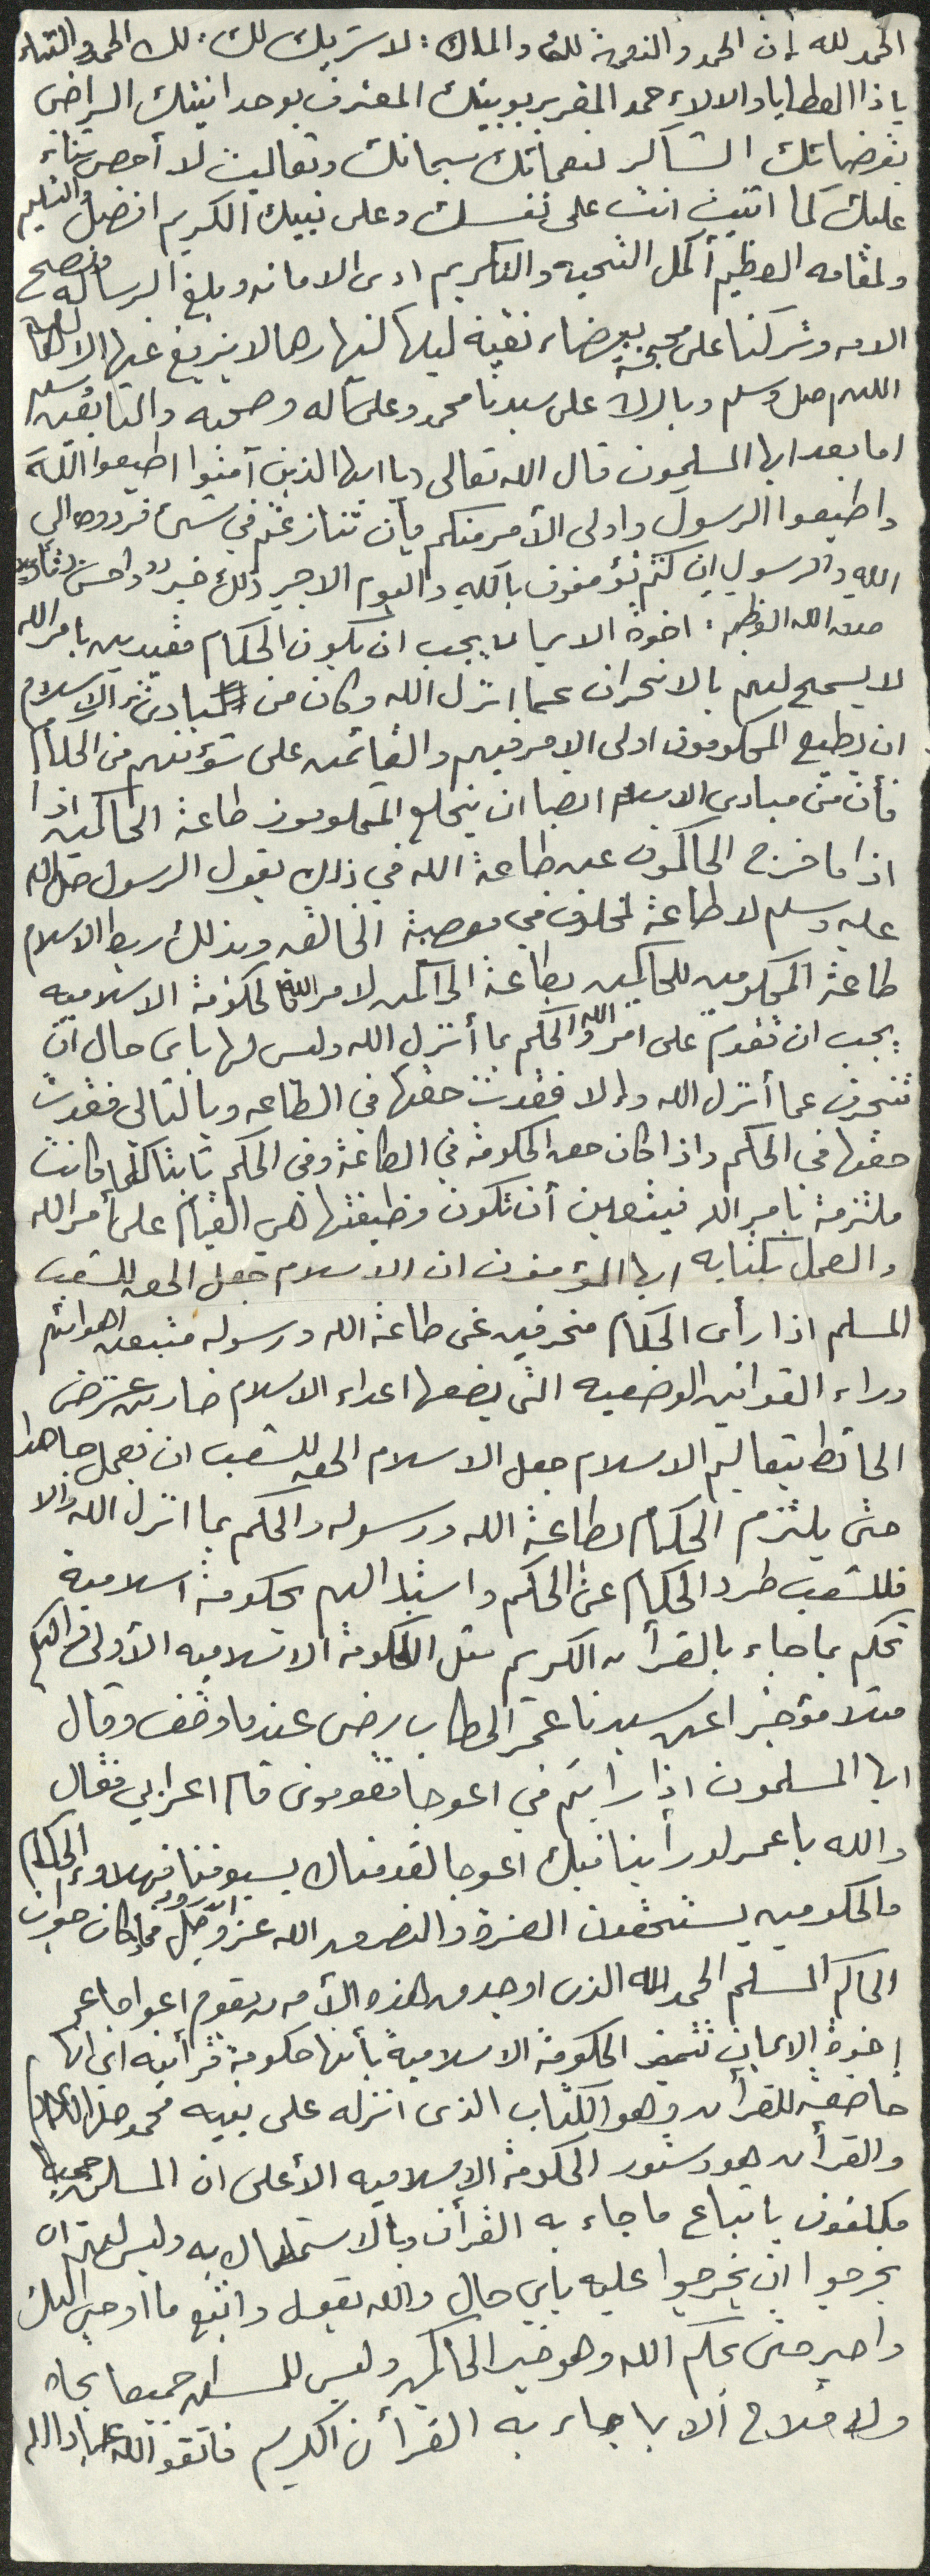 الحمد لله إن الحمد والنعمة لك والملك : لا شريك لك : لك الحمد والثناء
ياذا العطايا والالاء حمد المقر بربوبيتك المعترف بوحدانيتك الراضى
بقضائك الشاكر لنعمائك سبحانك وتعاليت لا أحصى ثناء
عليك كما اثنيت انت على نفسك وعلى نبيك الكريم افضل والتسليم
ولمقامه العظيم أكمل التحيه والتكريم ادى الامانه وبلغ الرساله ونصح
الامه وتركنا على محجة بيضاء نقية ليلها كنهارها لا يزيغ عنها الا
اللهم صل وسلم وبارك على سيدنا محمد وعلى آله وصحبه والتابعين وسلم
اما بعد ايها المسلمون قال الله تعالى يا ايها الذين آمنوا اطيعوا اللهَ
واطيعوا الرسول واولى الأمر منكم فإن تنازعتم في شئ فردوه الى
الله والرسول ان كنتم تؤمنون بالله واليوم الاخر ذلك خير واحسن تأويلا
صدق الله العظيم : اخوة الايمان يجب ان يكون الحكام مقيدين بامر الله
لا يسمح لهم بالانحراف عما انزل الله وكان من مبادئ الاسلام
ان يطيع المحكومون اولى الامر فيهم والقائمين على شؤنهم من الحكام
فأن من مبادى الاسلام ايضا ان يخلع المحكومون طاعة الحاكمين اذا
اذا ما خرج الحاكمون عن طاعة الله في ذلك يقول الرسول صلى الله
عليه وسلم لا طاعة لمخلوق في معصية الخالق وبذلك ربط الاسلام
طاعة المحكومين للحاكمين بطاعة الحاكمين لامر الله فالحكومة الاسلاميه
يجب ان تقوم على امر الله والحكم بما أنزل الله وليس لها باى حال ان
تنحرف عما أنزل الله وإلا فقدت حقها في الطاعه وبالتالى فقدت
حقها في الحكم واذا كان حق الحكومة في الطاعة وفى الحكم ثابتا كلما كانت
ملتزمة بامر الله فيتعين أن تكون وظيفتها هي القيام على أمر الله
والعمل بكتابه ايها المؤمنون ان الاسلام جعل الحق للشعب
المسلم اذا رأى الحكام منحرفين عن طاعة الله ورسوله متبعين اهوائهم
وراء القوانين الوضعيه التى يضعها اعداء الاسلام ضاربين عرض
الحائط بتعاليم الاسلام جعل الاسلام الحق للشعب ان يعمل جاهدا
حتى يلتزم الحكام بطاعة الله ورسوله والحكم بما انزل الله والا
فللشعب طرد الحكام عن الحكم واستبدالهم بحكومة اسلامية
تحكم بما جاء بالقرأن الكريم مثل الحكومة الاسلاميه الأولى واليكم
مثلا مؤخرا عن سيدنا عمر الخطاب رضى عندما وقف وقال
ايها المسلمون إذا رأيتم في اعوجا فقومونى قام اعرابى فقال
والله يا عمر لو رأينا فيك اعوجا لقومناك بسيوفنا فهلاء الحكام
والمحكومين يستحقون العزة والنصر من الله عز وجل فماذا كان جواب
الحاكم المسلم الحمد لله الذى اوجد من هذه الأمه من يقوم اعوجا عمر
إخوة الايمان تتميز الحكومة الاسلامية بأنها حكومة قرأنيه اى انها
خاضعة للقرأن وهو الكتاب الذى انزله على نبيه محمد صلى الله
والقرأن هو دستور الحكومة الاسلاميه الأعلى ان المسلمين جميعا
مكلفون باتباع ما جاء به القرأن وبالاستمساك به وليس لهم ان
يخرجوا ان يخرجوا عليه بأي حال والله يقول واتبع ما اوحى اليك
واصبر حتى يحكم الله وهو خير الحاكمين وليس للمسلمين جميعا نجاه
ولا فلاح الا بما جاء به القرأن الكريم فاتقوا الله عباد الله